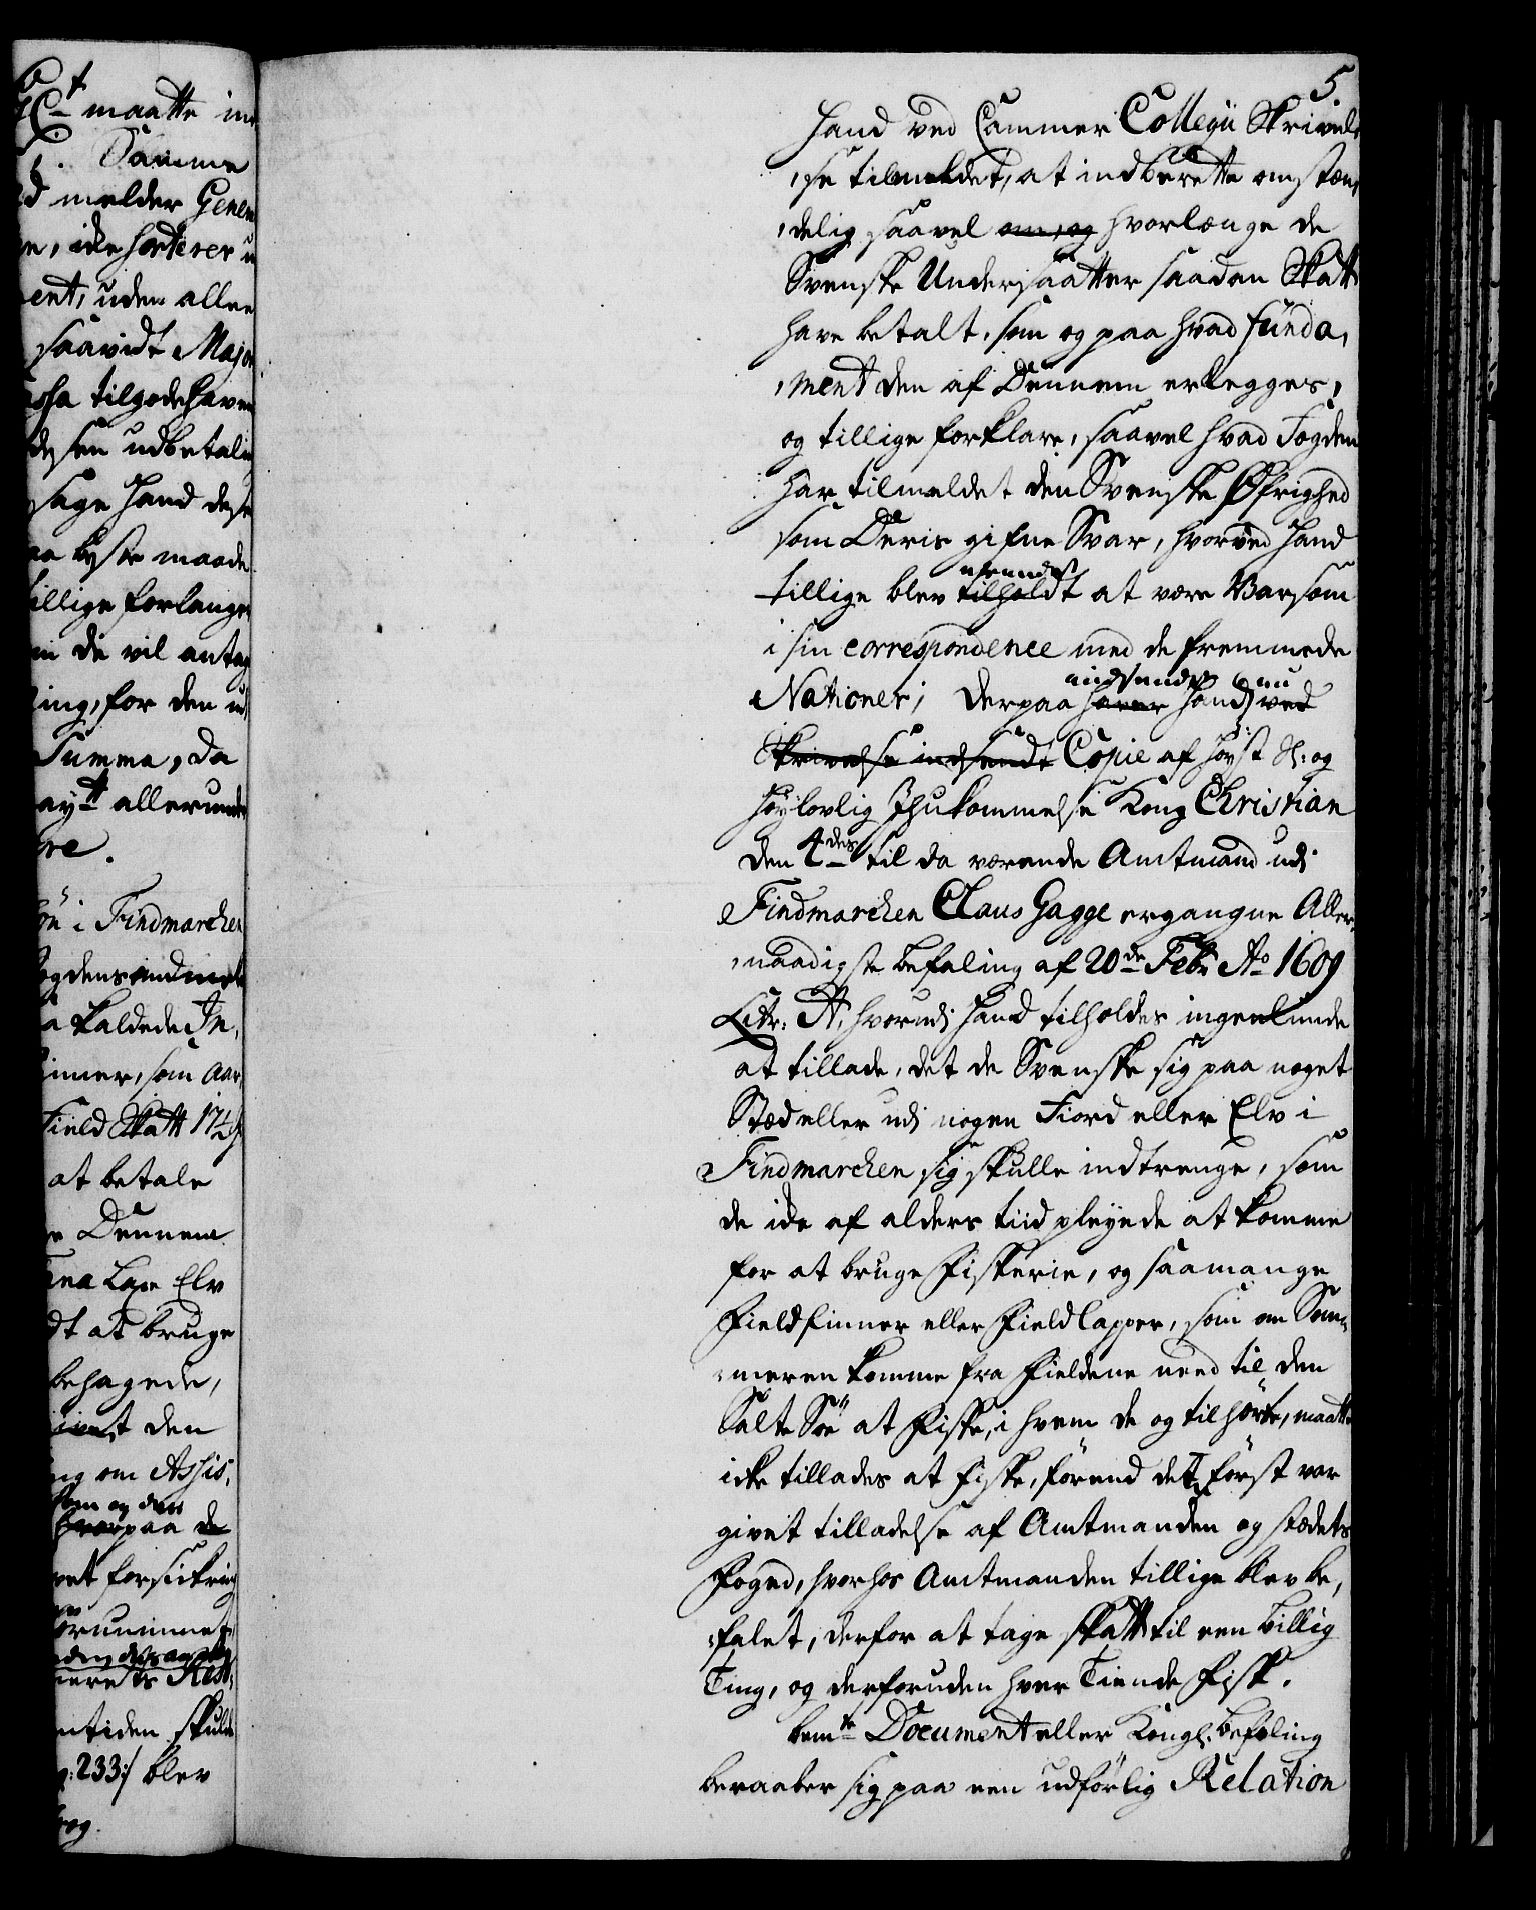 5.
hand ved Cammer Collegii Skrivel-
,se tilmeldet, at indberette omstæn,
,delig saavel om, og hvorlænge de
Svenske Undersaatter saadan Skatt
have betalt, som og paa hvad funda,
,ment den af Dennem erlegges,
og tillige forklare, saavel hvad Fogden
har tilmeldet den Svenske Øfrighed
som Deris gifne Svar, hvorved Hand
tillige blev tilholdt at være Varsom
i sin correspondence med de fremmede
Nationer; Derpaa haver Hand ved
indsendes nu
Skrivelse indsendt Copie af høyst Sl: og
høylovlig Ihukommelse Kong Christian
den 4des til da værende Amtmand udi
Findmarchen Claus Gagge ergangne Aller,
,naadigste befaling af 20de Febr Ao 1609
Litr: A, hvorudi Hand tilholdes ingenlunde
at tillade, det de Svenske sig paa noget
Stæd eller udi nogen Fiord eller Elv i
Findmarchen sig skulle indtrenge, som
de icke af alders tiid pleyede at komme
for at bruge Fiskerie, og saamange
Fieldfinner eller Field Lapper, som om Som-
,meren komme fra Fieldene need til den
Salte Söe at Fiske, i hvem de og tilhörte, maatte
icke tillades at fiske, förend det först var
givet tilladelse af Amtmanden og stædets
Foged, hvorhos Amtmanden tillige blev be,
,falet, derfor at tage Skatt til een billig
Ting, og derforuden hver Tiende Fisk.
bemte Document eller Kongl. befaling
beraaber sig paa een udförlig Relation
maatte
Samme
melder
uden
saavidt Major
tilgodehaven
udbetalin
sage Hand
maade
forlanger
de vil antag
for den
Summa, da
allerunde
i Findmarchen
kaldede
som Aar,
Field Skatt 17½
at betale
Dennem
Elv
at bruge
behagede,
den
om Assis,
som og den
hvorpaa de
forsickring
skulde
233:/ blev
og.